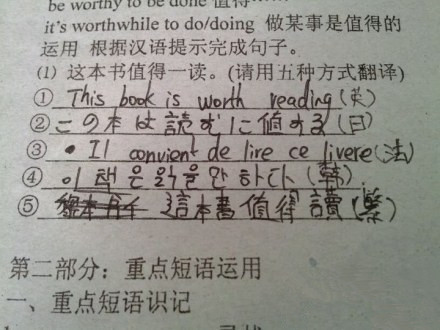 be worthy to be done 值得
it's worthwhile to do/doing 做某事是值得的
运用 根据汉语提示完成句子。
(1) 这本书值得一读。(请用五种方式翻译)
① This book is worth reading (英)
② この本は読むに値する (日)
③ • Il convient de lire ce livere (法)
④ 이 책은 읽을만 하다 (韩).
⑤ 這本書值得讀 (繁)
第二部分：重点短语运用
一、重点短语识记